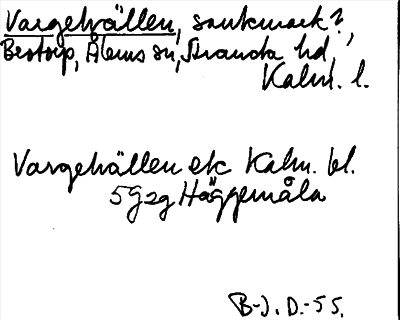 Vargehällen, sankmark?,
Bestorp, Ålems sn, Stranda hd,
Kalm. l.
Vargehällen ek Kalm. bl.
5g2g Häggemåla
B-J. D.-55.